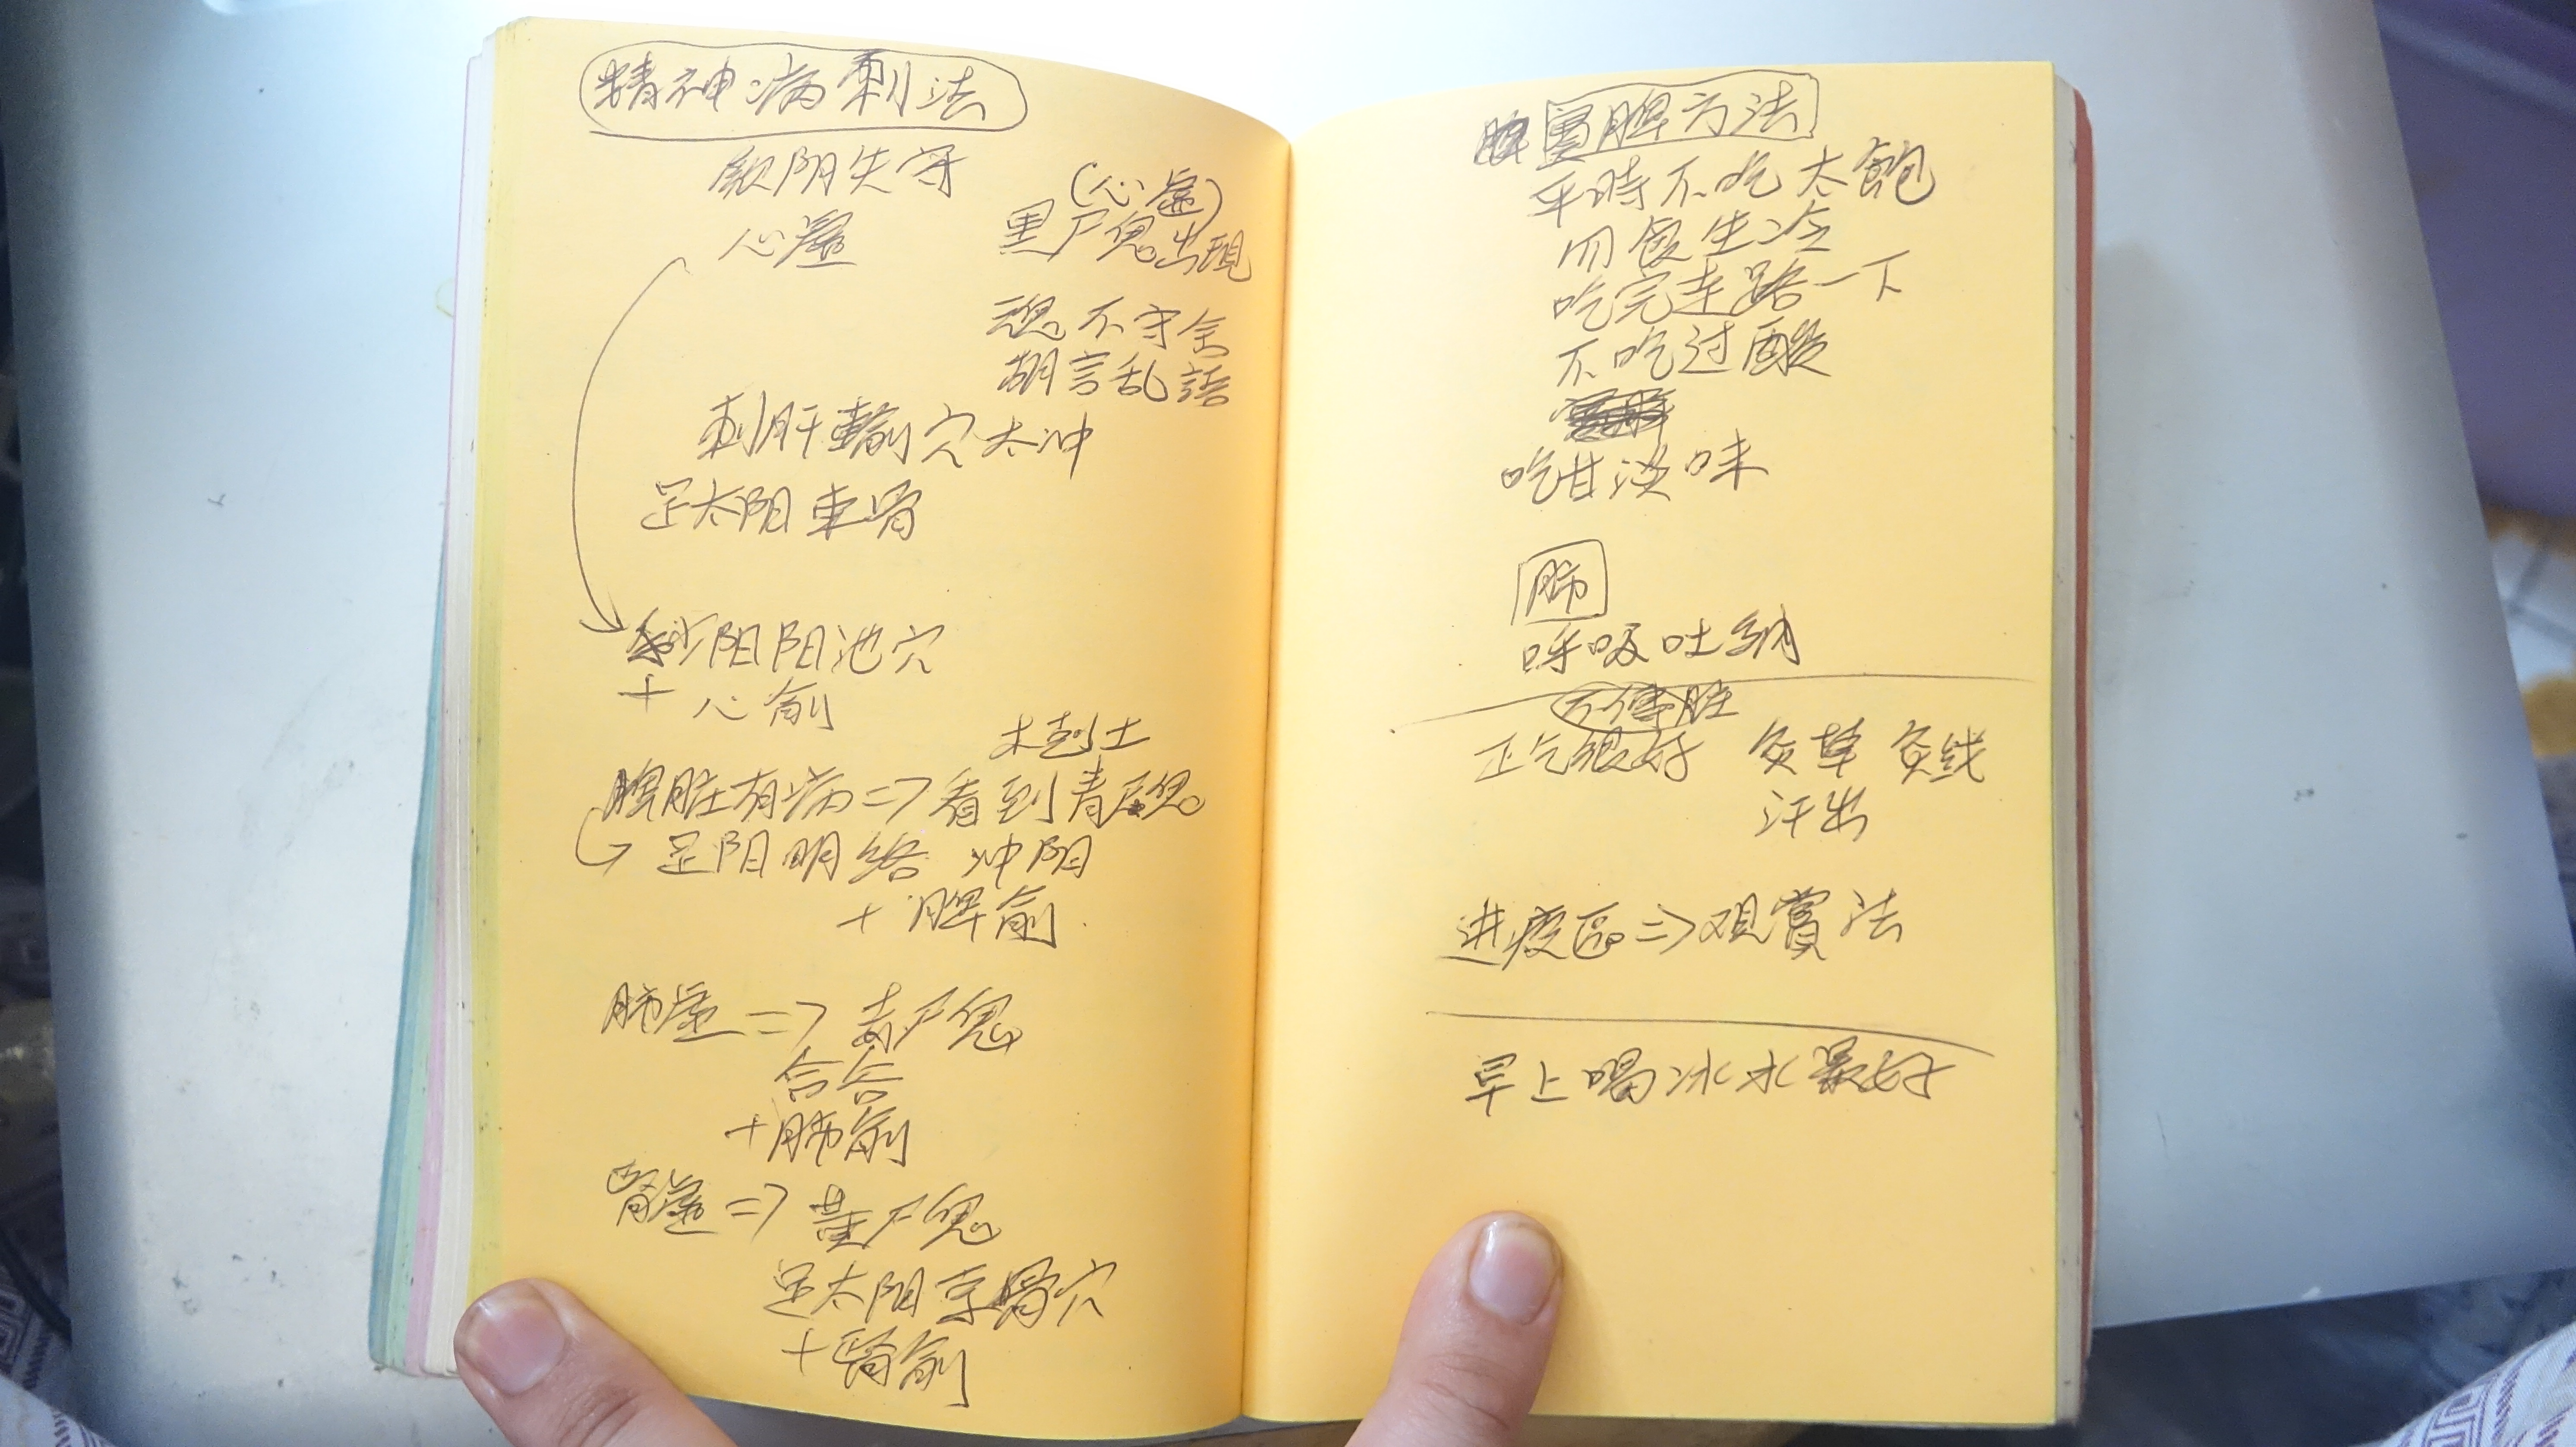 精神病刺法
厥阴失守
心虚
(心虚)
黑尸鬼出現
魂不守舍
胡言乱語
刺肝輸穴太冲
足太阳束骨
少阳阳池穴
+ 心俞
木剋土
脾脏有病 => 看到青尸鬼
足阳明 冲阳
+ 脾俞
肺虚 => 赤尸鬼
合谷
+ 肺俞
腎虚 => 黄尸鬼
足太阳京骨穴
+ 腎俞
實脾方法
平時不吃太飽
勿食生冷
吃完走路一下
不吃过酸
吃甘淡味
肺
呼吸吐納
正气很好
汗出
进疫区 => 观賞法
早上喝冰水最好